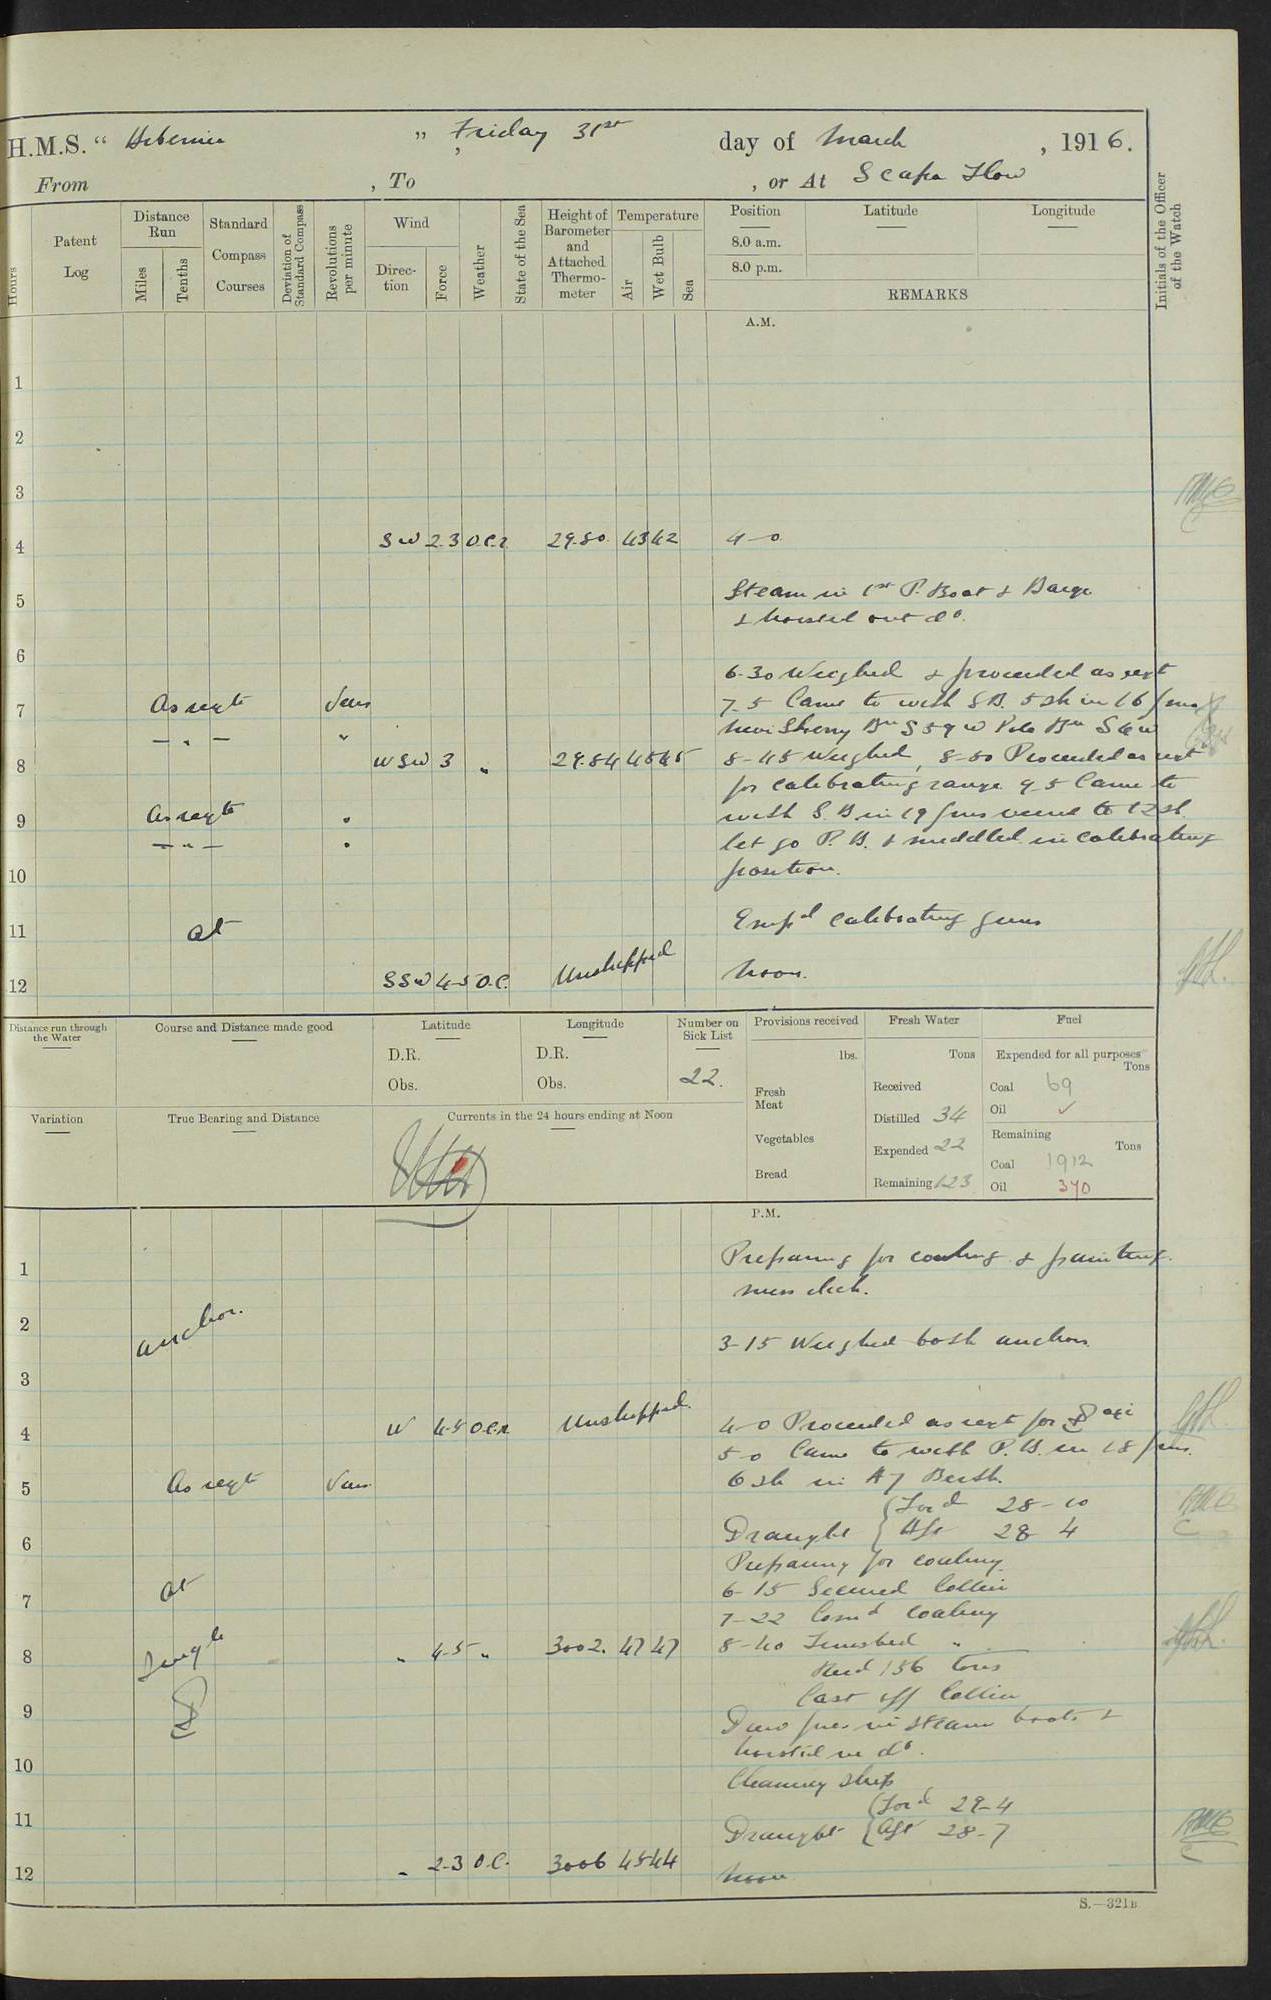 H.M.S. " Hibernia " , Friday 31st day of March , 1916.
From , To , or At Scapa Flow
Hours
Patent Log
Distance Run
Miles
Tenths
Standard Compass Courses
Deviation of Standard Compass
Revolutions per minute
Wind
Direction
Force
Weather
State of the Sea
Height of Barometer and Attached Thermometer
Temperature
Air
Wet Bulb
Sea
Position
8.0 a.m.
8.0 p.m.
Latitude
Longitude
REMARKS
Initials of the Officer of the Watch
A.M.
1
2
3
4 SW 2.3 O.C.R 29.80 43 42 4-0
5 Steam in 1st P. Boat & Barge
& hoisted out do.
6
6-30 Weighed & proceeded as reqt
7 As reqte Vars 7-5 Came to with S.B. 5 sh in 16 fms
— " — " Bn S 59 W Pole Bn S 6 W
8 WSW 3 " 29.84 45 45 8-45 Weighed, 8-50 Proceeded as reqt
for calibrating range 9-5 Came to
9 As reqte " with S.B in 19 fms veered to 12 sh
— " — " let go P.B. & middled in calibrating
10 position.
11 at Empd calibrating guns
12 SSW 4-5 O.C. Unshipped Noon.
Distance run through the Water
Course and Distance made good
Latitude
D.R.
Obs.
Longitude
D.R.
Obs.
Number on Sick List
22.
Variation
True Bearing and Distance
Currents in the 24 hours ending at Noon
Provisions received
lbs.
Fresh Meat
Vegetables
Bread
Fresh Water
Tons
Received
Distilled 34
Expended 22
Remaining 123
Fuel
Expended for all purposes
Tons
Coal 69
Oil ✓
Remaining
Tons
Coal 1912
Oil 370
P.M.
1 Preparing for coaling & painting
mess deck.
2 anchor. 3-15 Weighed both anchors.
3
4 W 4-5 O.C.R Unshipped. 4-0 Proceeded as reqt for
5-0 Came to with P.B. in 18 fms.
5 As reqte Vars 6 sh in A7 Berth.
Draught { Ford 28-10
6 Aft 28 4
Preparing for coaling.
7 at 6-15 Secured Collier
7-22 Comd coaling
8 Single " 4-5 " 3002. 47 47 8-40 Finished "
Recd 156 tons
Cast off Collier
9 Drew fires in steam boats &
hoisted in do.
10 Cleaning ship
11 Draught { Ford 29-4
Aft 28-7
12 " 2-3 O.C. 3006 45 44
S.—321B